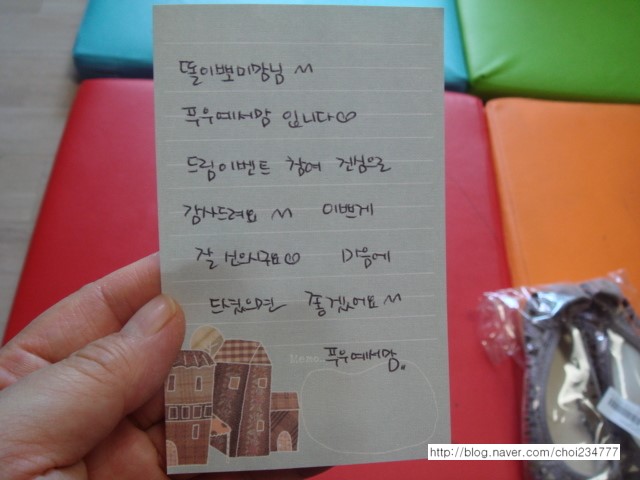 똘이뽀미맘님 ^^
푸우예서맘 입니다♡
드림이벤트 참여 진심으로
감사드려요 ^^ 이쁘게
잘 신으시구요♡ 마음에
드셨으면 좋겠어요^^
Memo.
푸우예서맘.
http://blog.naver.com/choi234777